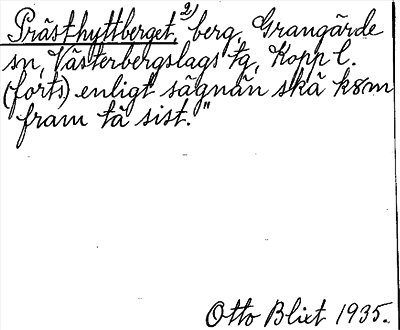 Prästhyttberget, 2) berg, Grangärde
sn, Västerbergslags tg, Kopp l.
(forts) enligt sägnan skä k8m
fram tä sist."
Otto Blixt 1935.